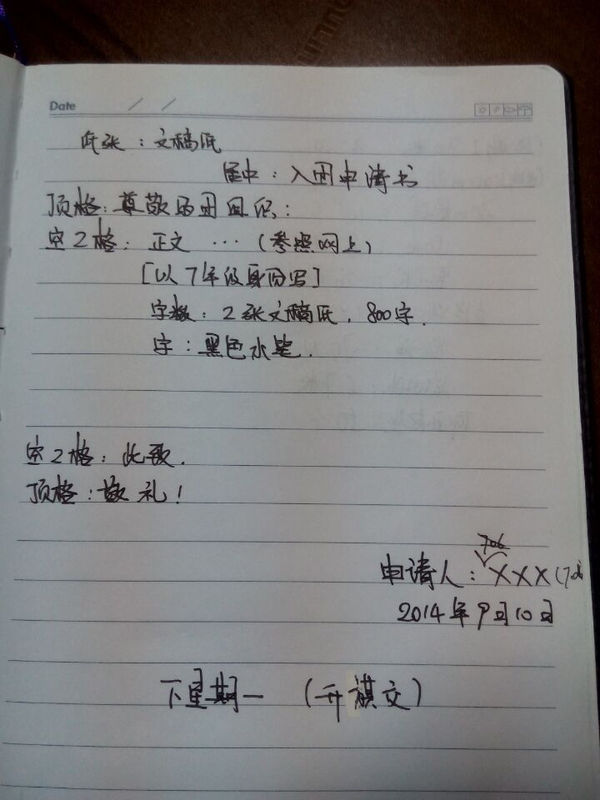 Date / /
纸张：文稿纸
居中：入团申请书
顶格：尊敬的团组织：
空2格：正文 …（参照网上）
[以7年级身份写]
字数：2张文稿纸，800字.
字：黑色水笔.
空2格：此致.
顶格：敬礼！
706
申请人：XXX(706
2014年9月10日
下星期一 （升旗交）